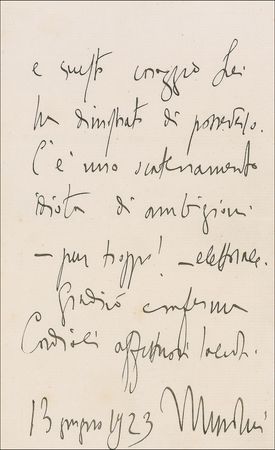 e questo coraggio Lei
ha dimostrato di possederlo.
C'è uno scatenamento
idiota di ambizioni
— pur troppo! — elettorale.
Gradirò conferma
Cordiali affettuosi saluti.
13 giugno 1923 Mussolini